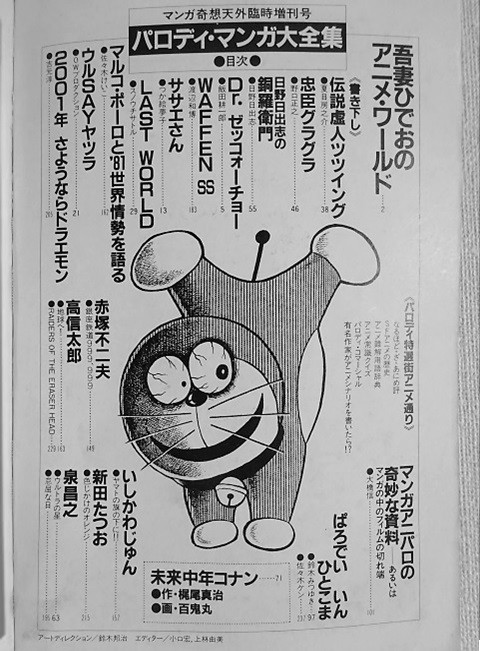 マンガ奇想天外臨時増刊号
パロディ・マンガ大全集
●目次●
吾妻ひでおの
アニメ・ワールド
2
《書き下し》
伝説虚人ツツイング
●夏目房之介
38
忠臣グラグラ
●野口正之
46
日野日出志の
銅羅衛門
●日野日出志
55
Dr.ゼッコォーチョー
●飯田耕一郎
5
WAFFEN SS
●渡辺和博
183
ササエさん
●つか絵夢子
13
LAST WORLD
●スノウチサトル
29
マルコ・ポーロと'81世界情勢を語る
●佐々木けいこ
192
ウルSAYヤツラ
●OWプロダクション
21
2001年 さようならドラエモン
●吉元洋
205
《パロディ特選街アニメ通り》
なるほど・ざ・あにめ評
SFアニメの歴史
アニメ難解用語辞典
アニメ常識クイズ
パロディ・コマーシャル
有名作家がアニメシナリオを書いたら!?
マンガアニパロの
奇妙な資料 あるいは
マンガの中のフィルムの切れ端
●大橋信
101
赤塚不二夫
●銀座鉄道999.999
149
高信太郎
●地球へ!
●RAIDERS OF THE ERASER HEAD
163
229
ぱろでい いん
ひとこま
●鈴木みつゆき
97
●佐々木ケン
237
いしかわじゅん
●ヤマトの旗の下に!!
157
新田たつお
●色じかけのオレンジ
213
泉昌之
●ウルトラの星
63
●忍屈な日
195
未来中年コナン
71
●作・梶尾真治
●画・百鬼丸
アートディレクション/鈴木邦治 エディター/小口宏、上林由美